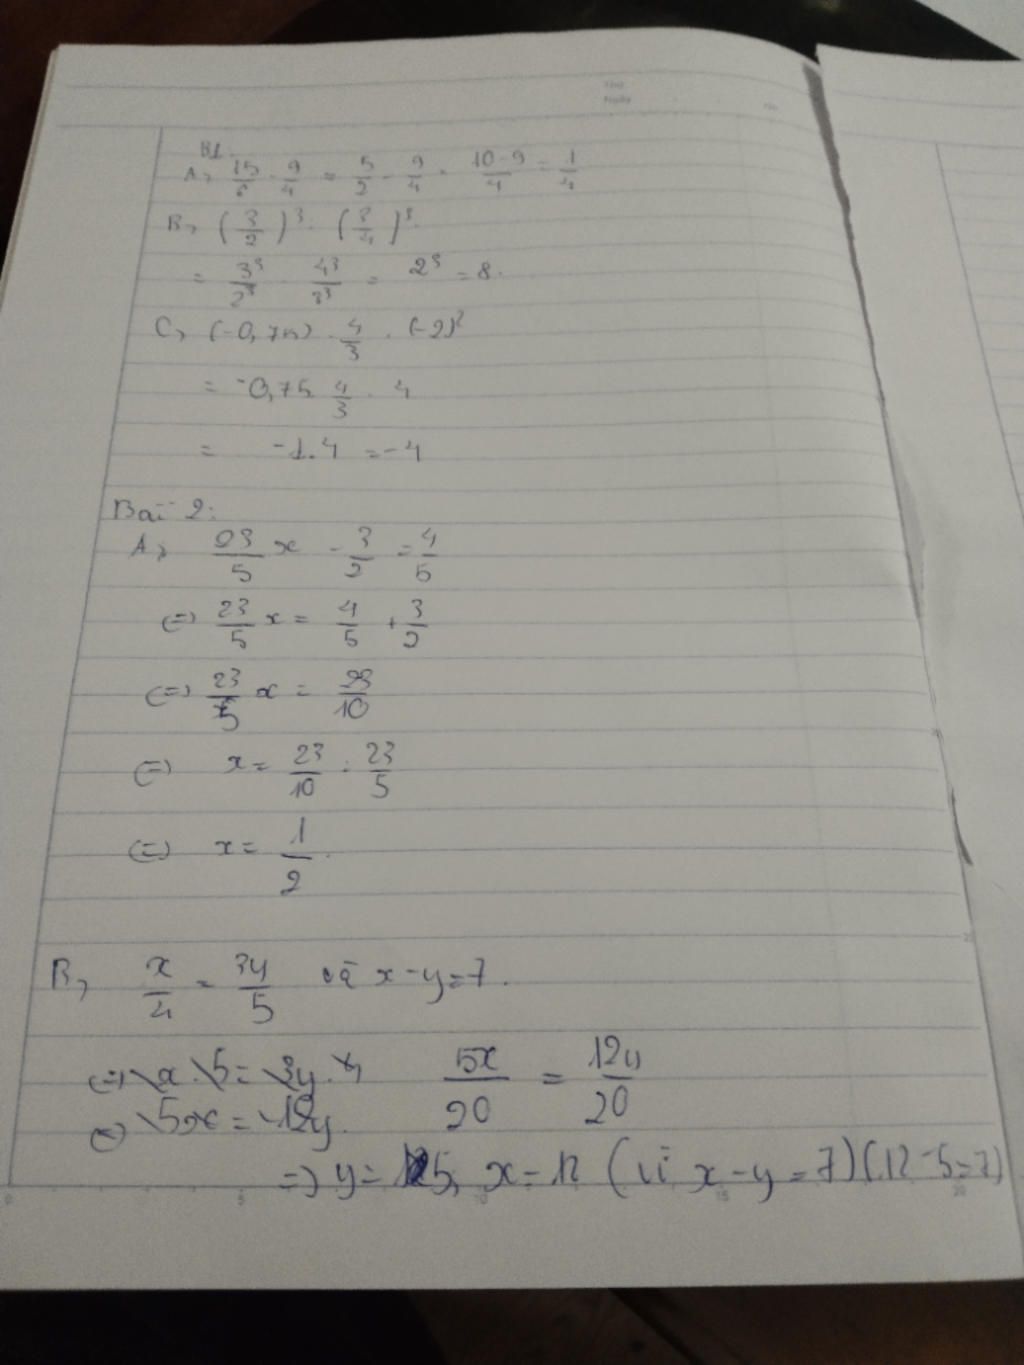 B1.
A, 15/6 - 9/4 = 5/2 - 9/4 = 10-9/4 = 1/4
B, (3/2)³ : (3/4)³.
= 3³/2³ . 4³/3³ = 2³ = 8.
C, (-0,75) . 4/3 . (-2)²
= -0,75 . 4/3 . 4
= -1.4 = -4
Bài 2:
A, 23/5 x - 3/2 = 4/5
(=) 23/5 x = 4/5 + 3/2
(=) 23/5 x = 23/10
(=) x = 23/10 : 23/5
(=) x = 1/2.
B, x/4 = 3y/5 và x-y=7.
(=) x.5 = 3y.4 5x/20 = 12y/20
(=) 5x = 12y.
=) y = 5, x = 12 (vì x-y=7)(12-5=7)